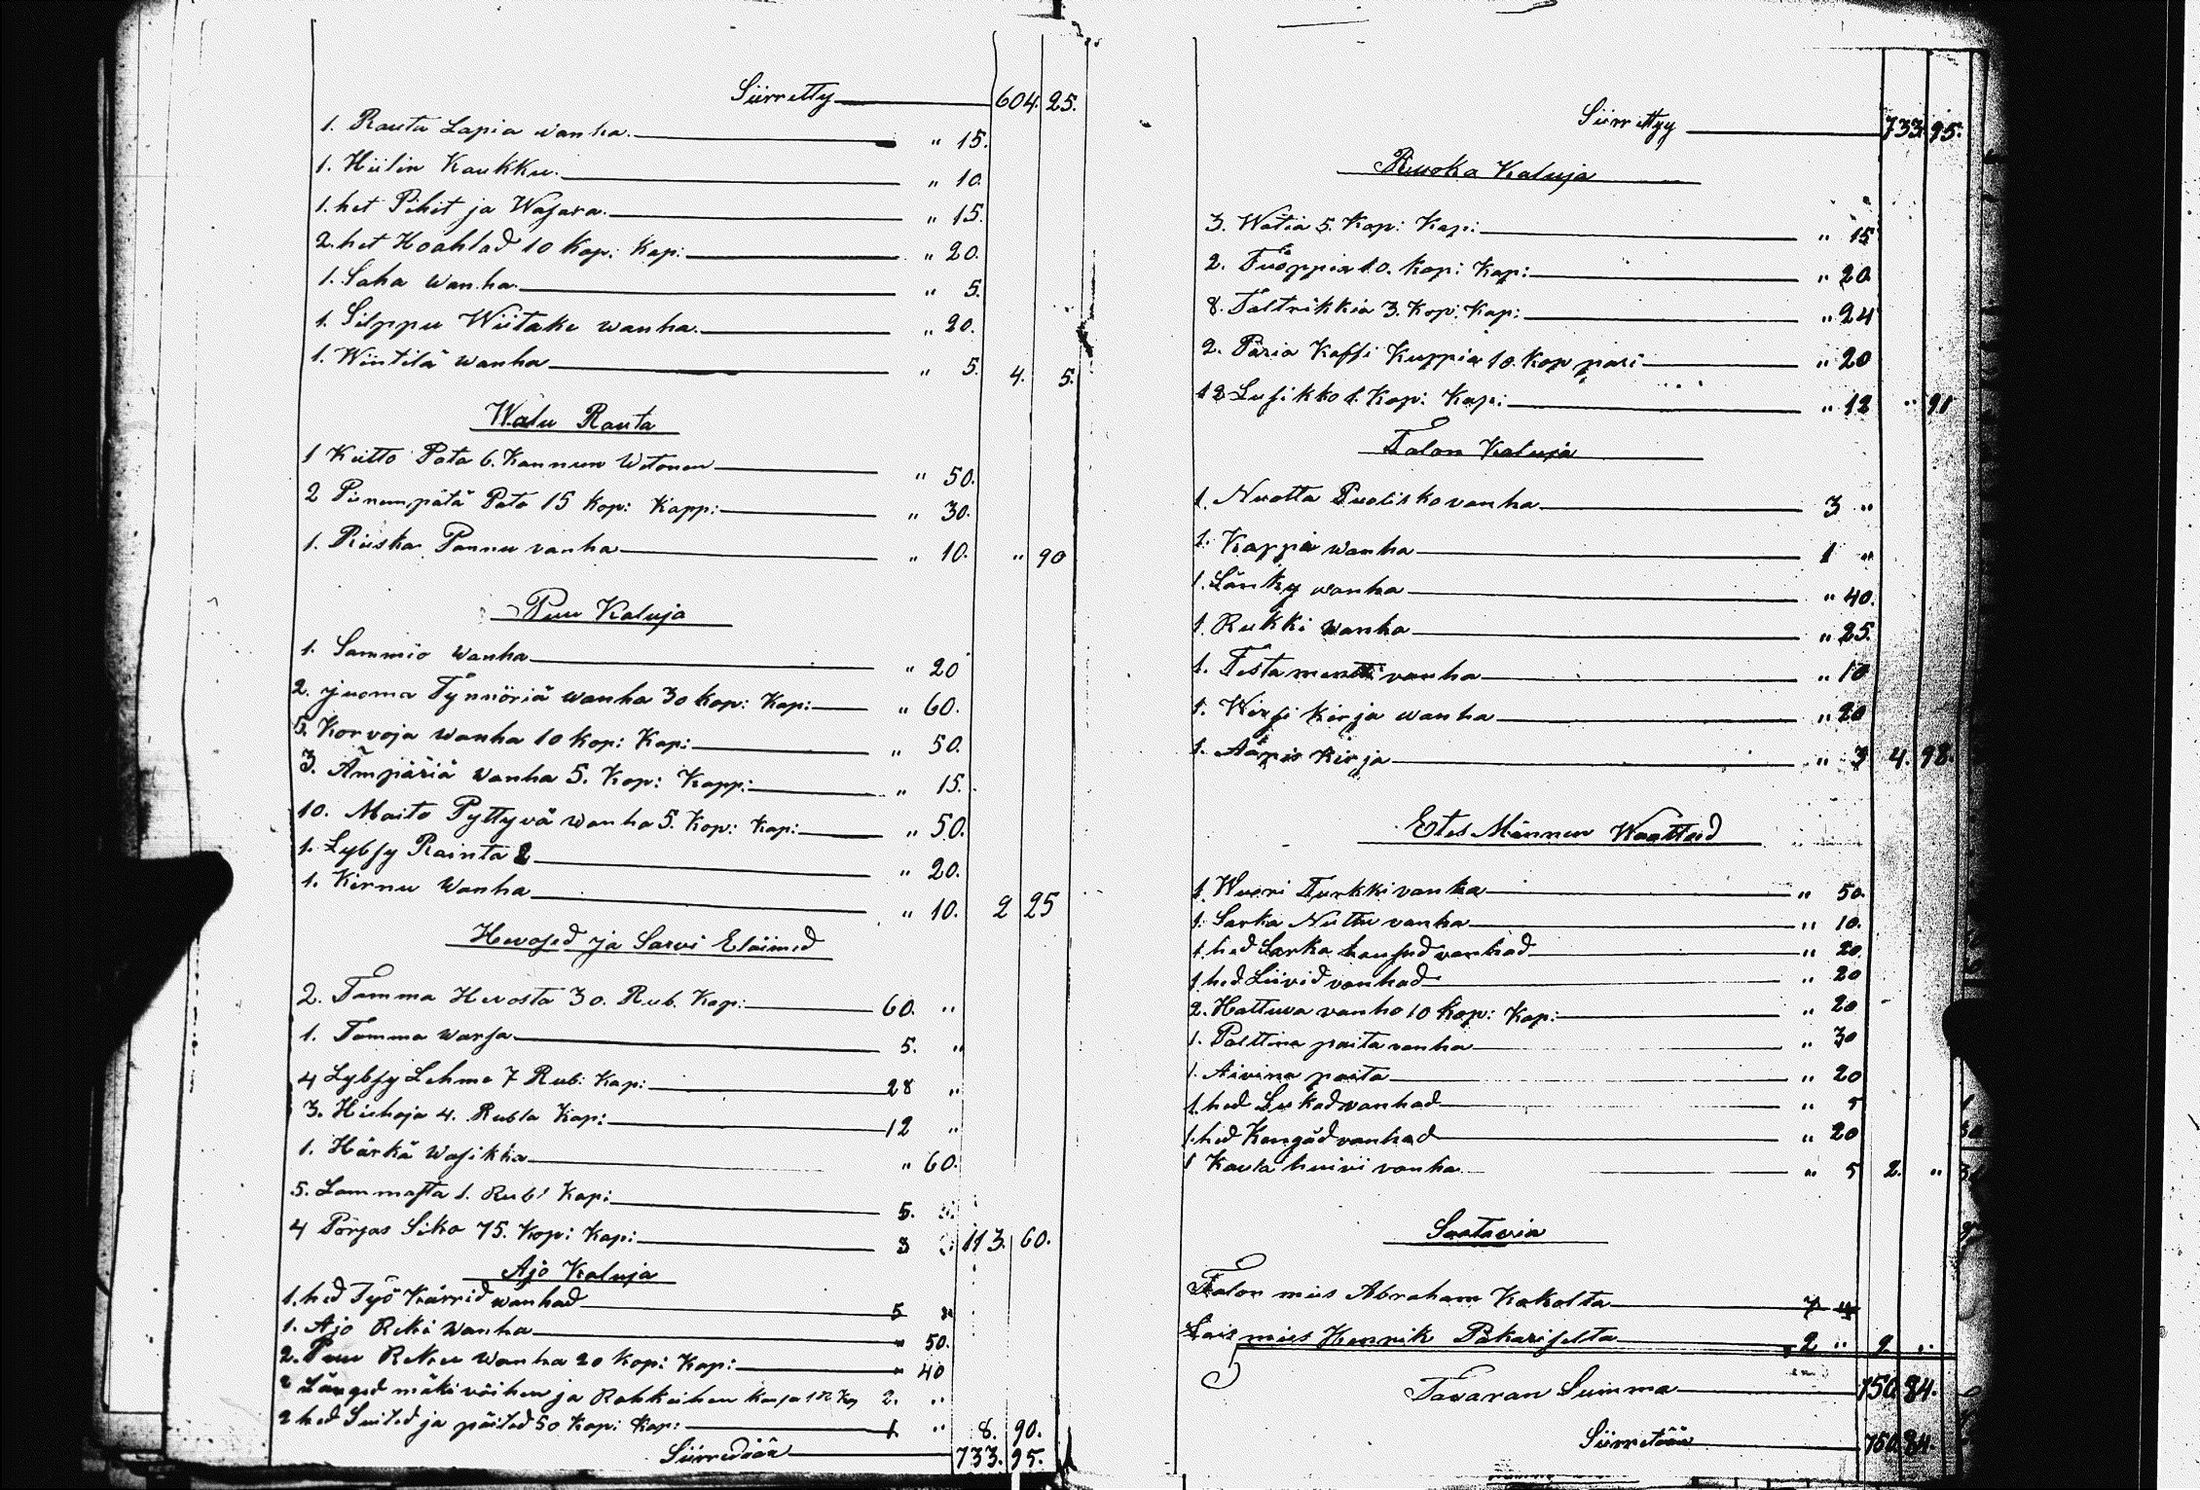 Siirretty 604. 25.
1. Rauta Lapia wanha. " 15.
1. Hiilin Kaukku. " 10.
1. het Pihit ja Wasara. " 15.
2. het Hoahlad 10 Kop: Kap: " 20.
1. Saha wanha. " 5.
1. Silppu Wiitake wanha. " 20.
1. Wiintilä wanha " 5. 4. 5.
Walu Rauta
1 Keitto Pata 6. Kannun Wetonen " 50.
2 Pienempätä Pata 15 Kop: Kapp: " 30.
1. Riiska Pannu vanha " 10. " 90
Puu Kaluja
1. Sammio wanha " 20
2. juoma Tynnöriä wanha 30 Kop: Kap: " 60.
5. Korvoja wanha 10 Kop: Kap: " 50.
3. Ämpäriä wanha 5. Kop: Kapp: " 15.
10. Maito Pyttyvä wanha 5. Kop: Kap: " 50.
1. Lybsy Rainta " 20.
1. Kirnu wanha " 10. 2 25
Hevosed ja Sarvi Eläimed
2. Tamma Hevosta 30. Rub. Kap: 60. "
1. Tamma warsa 5. "
4 Lybsy Lehmä 7 Rub: Kap: 28 "
3. Hiehoja 4. Rubla Kap: 12 "
1. Härkä wasikka " 60.
5. Lammasta 1. Rubl Kap: 5.
4 Porsas Sika 75. Kop: Kap: 3 113. 60.
Ajo Kaluja
1. hed Työ Kärrid wanhad 5 "
1. Ajo Reki wanha " 50.
2. Puu Rekeä wanha 20 Kop: Kap: " 40
2 Länged mäkivöihen ja Rahkeihen 2. "
2 hed Suited ja päited 50 Kop: Kap: 1 " 8. 90.
Siirredään 733. 95.
Siirrettyy 733. 95.
Ruoka Kaluja
3. Watia 5. Kop: Kap: " 15
2. Tuoppia 10. Kop: Kap: " 20
8. Taltrikkia 3. Kop: Kap: " 24
2. Paria Kaffi Kuppia 10. Kop pari " 20
12 Lusikko 1. Kop: Kap: " 12 " 91
Talon Kaluja
1. Nuotta Puolisko vanha 3 "
1. Kappi wanha 1 "
1. Länky wanha " 40.
1. Rukki wanha " 25.
1. Testamentti vanha " 10
1. Wirsi Kirja wanha " 20
1. Aapis Kirja " 3 4. 98.
Etes Männen Waatteid
1. Wuori Turkki vanha " 50.
1. Sarka Nuttu vanha " 10.
1. hed Sarka housud vanhad " 20.
1 hed. Liivid vanhad " 20
2. Hattuva vanha 10 Kop: Kap: " 20
1. Palttina paita vanha " 30
1. Aivina paita " 20
1. hed Sukad vanhad " 5
1. hed Kengäd vanhad " 20
1 Kaula huivi vanha " 5 2. "
Saatavia
Talon mies Abraham Kokolta 7
Lais mies Henrik Pakariselta 2 " 9 "
Tavaran Summa 750. 84.
Siirretään 750. 84.